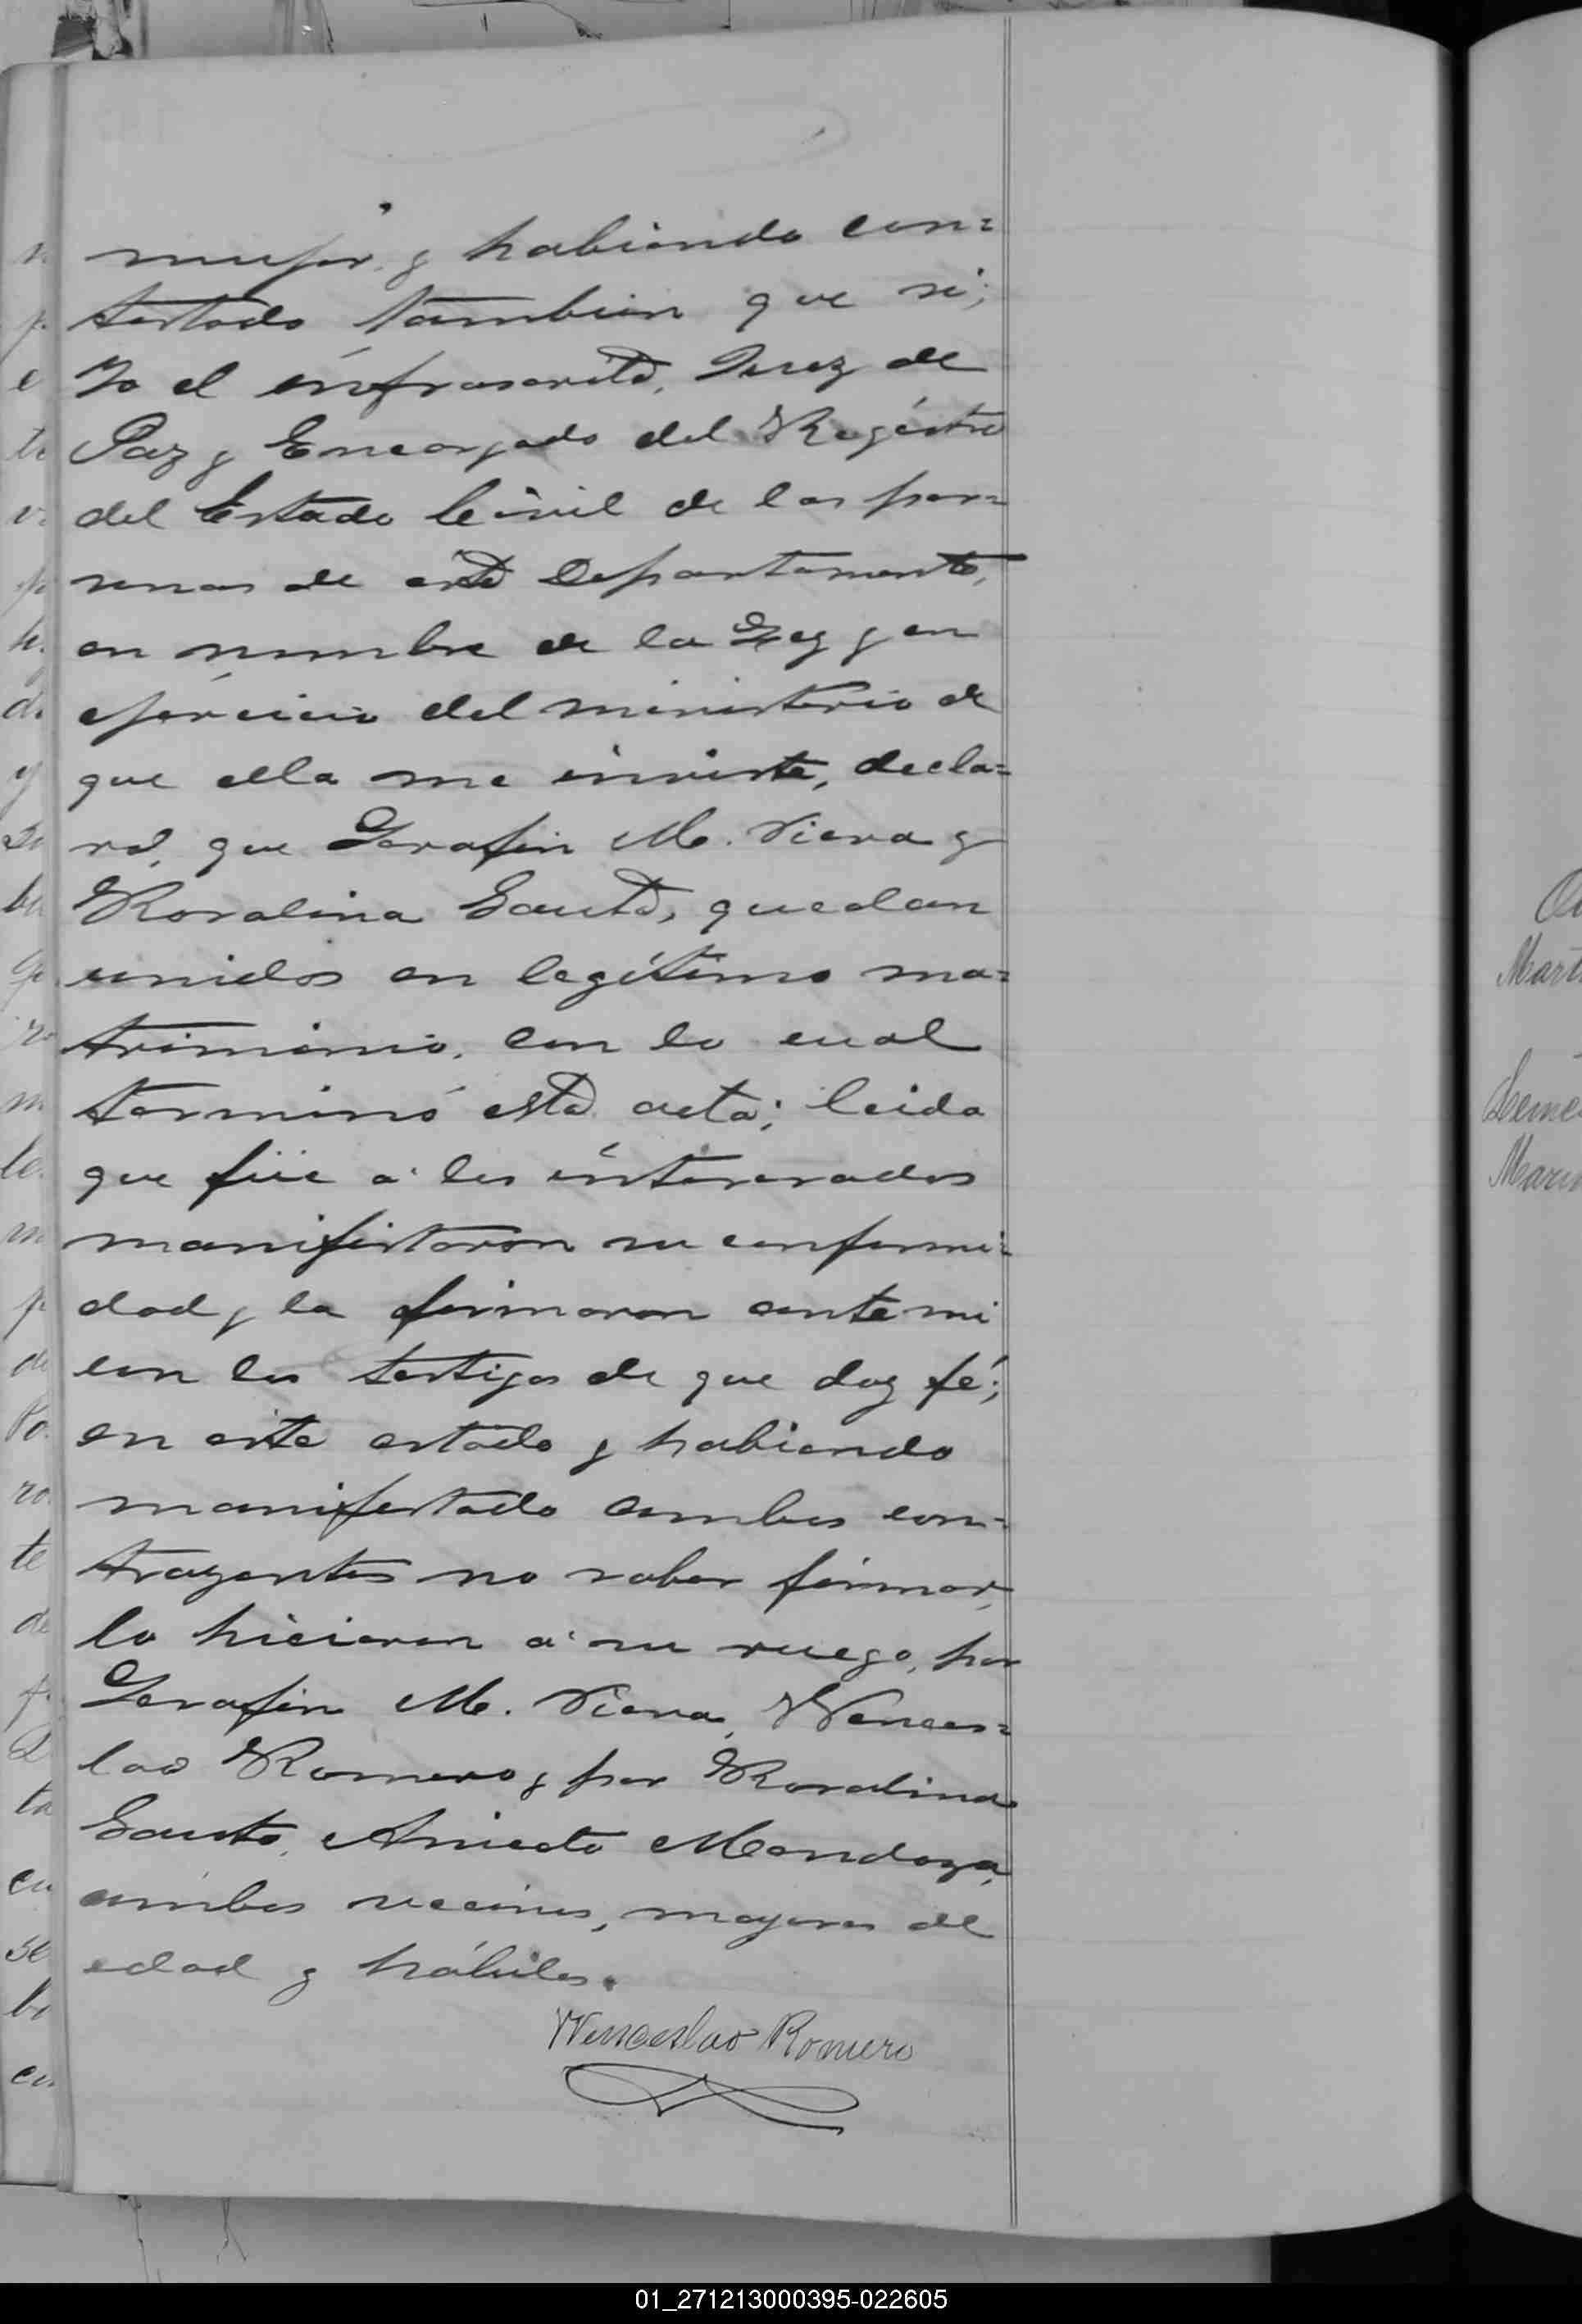 mujer, y habiendo con=
testado tambien que si;
Yo el infrascrito, Juez de
Paz y Encargado del Registro
del Estado Civil de las per=
sonas de este Departamento,
en nombre de la Ley y en
ejercicio del ministerio de
que ella me inviste, decla=
ro, que Serafin M. Viera y
Rosalina Sauto, quedan
unidos en legítimo ma=
trimonio, con lo cual
terminó esta acta; leida
que fué á los interesados
manifestaron su conformi=
dad y la firmaron ante mi
con los testigos de que doy fé;
en este estado y habiendo
manifestado ambos con=
trayentes no saber firmar,
lo hicieron á su ruego, por
Serafin M. Viera, Wences=
lao Romero y por Rosalina
Sauto, Aniceto Mendoza,
ambos vecinos, mayores de
edad y hábiles.
Wenceslao Romero
01_271213000395-022605